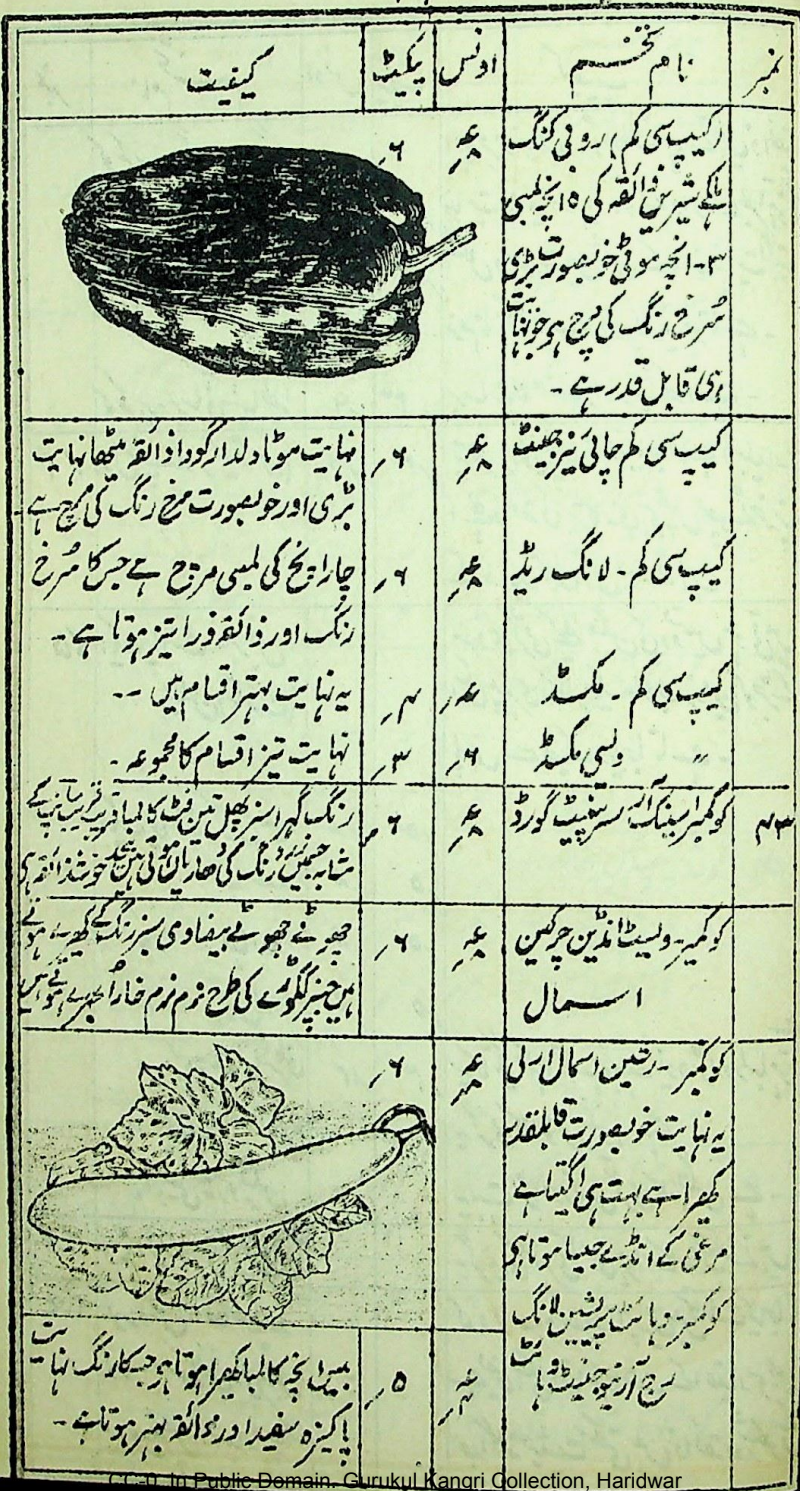 نمبر نام تخم اونس پیکٹ کیفیت
(کیپ سی کم) روبی کنگ
ہلکے شیریں ذائقہ کی ۵ انچہ لمبی
۳-انچہ موٹی خوبصورت بڑی
سُرخ رنگ کی مرچ ہو جو نہایت
ہی قابل قدر ہے -
۶ر
کیپ سی کم چائی نیز جینٹ
۶ر
نہایت موٹا دلدار گودا ذائقہ میٹھا نہایت
بڑی اور خوبصورت سرخ رنگ کی مرچ ہے -
کیپ سی کم - لانگ ریڈ
۶ر
چار انچ کی لمبی مرچ ہے جس کا سُرخ
رنگ اور ذائقہ ذرا تیز ہوتا ہے -
کیپ سی کم - مکسڈ
۴ر
یہ نہایت بہتر اقسام ہیں --
〃 دیسی مکسڈ ۶ر ۳ر نہایت تیز اقسام کا مجموعہ -
۴۳ کوکمبر اسنیک آر سرپنیٹ گورڈ
۶ر
رنگ گہرا سبز پھل تین فٹ کا لمبا قریب قریب سانپ کے
مشابہ جسمیں زرد رنگ کی دھاریاں ہوتی ہیں بیحد خوشذائقہ ہی
کوکمبر - ویسٹ انڈین جرکین
اسمال
۶ر
چھوٹے چھوٹے بیضاوی سبز رنگ کے کھیرے ہوتے
ہیں جنپر ککوڑے کی طرح نرم نرم خار اُبھرے ہوتے ہیں
کوکمبر - رشین اسمال ارلی
۶ر
یہ نہایت خوبصورت قابلقدر
کھیرا ہے بہت ہی اگیتا ہے
مرغی کے انڈے جیسا ہوتا ہی
کوکمبر وہائٹ پریشین لانگ
رج آر نیو جینٹ وہائٹ
۵ر
بیس انچہ کا لمبا کھیرا ہوتا ہو جسکا رنگ نہایت
پاکیزہ سفید اور ذائقہ بہتر ہوتا ہے -
CC-0. In Public Domain. Gurukul Kangri Collection, Haridwar